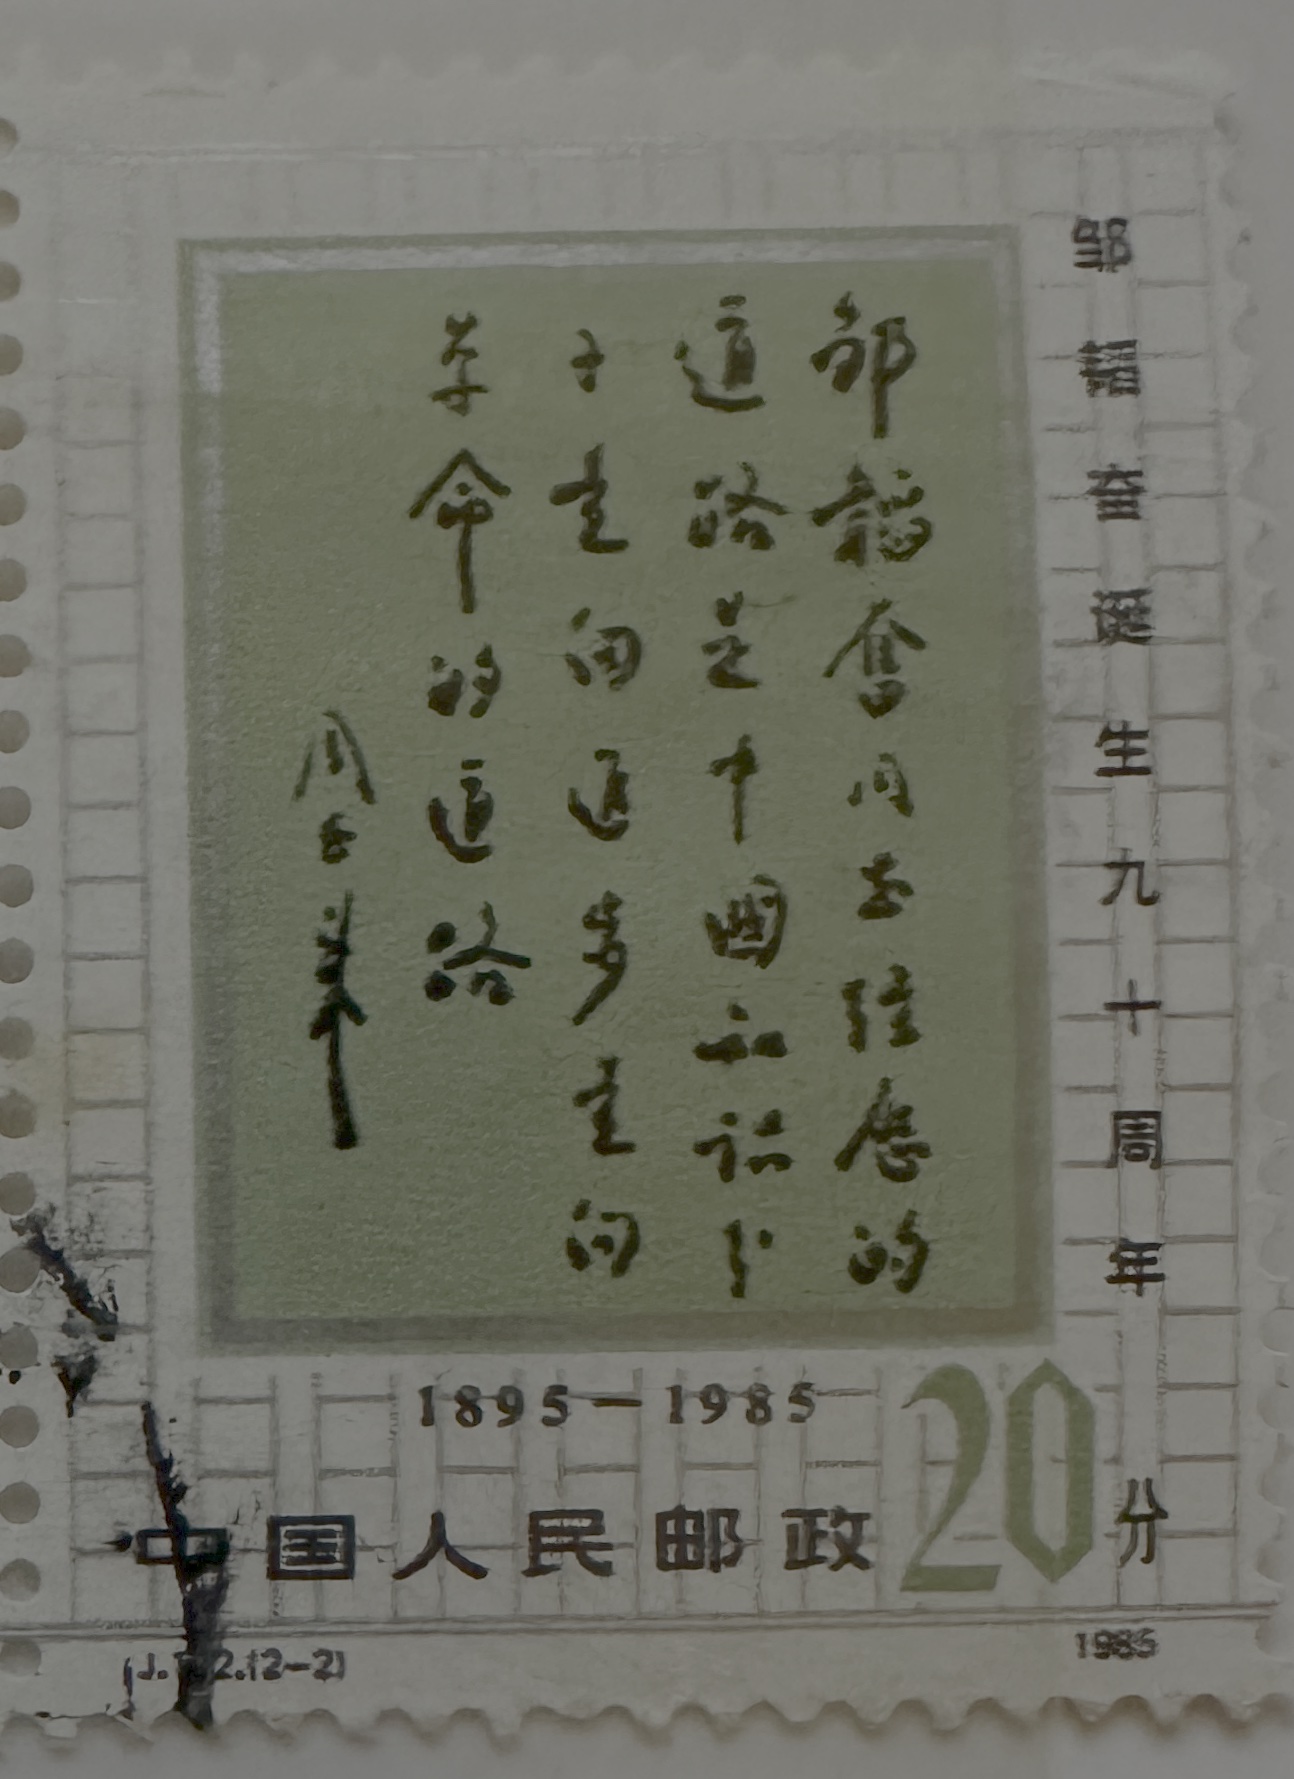 邹韬奋诞生九十周年
鄒韜奮同志經歷的
道路是中國知識分
子走向進步走向
革命的道路
周恩来
1895—1985
中国人民邮政
20分
J.122.(2-2)
1985